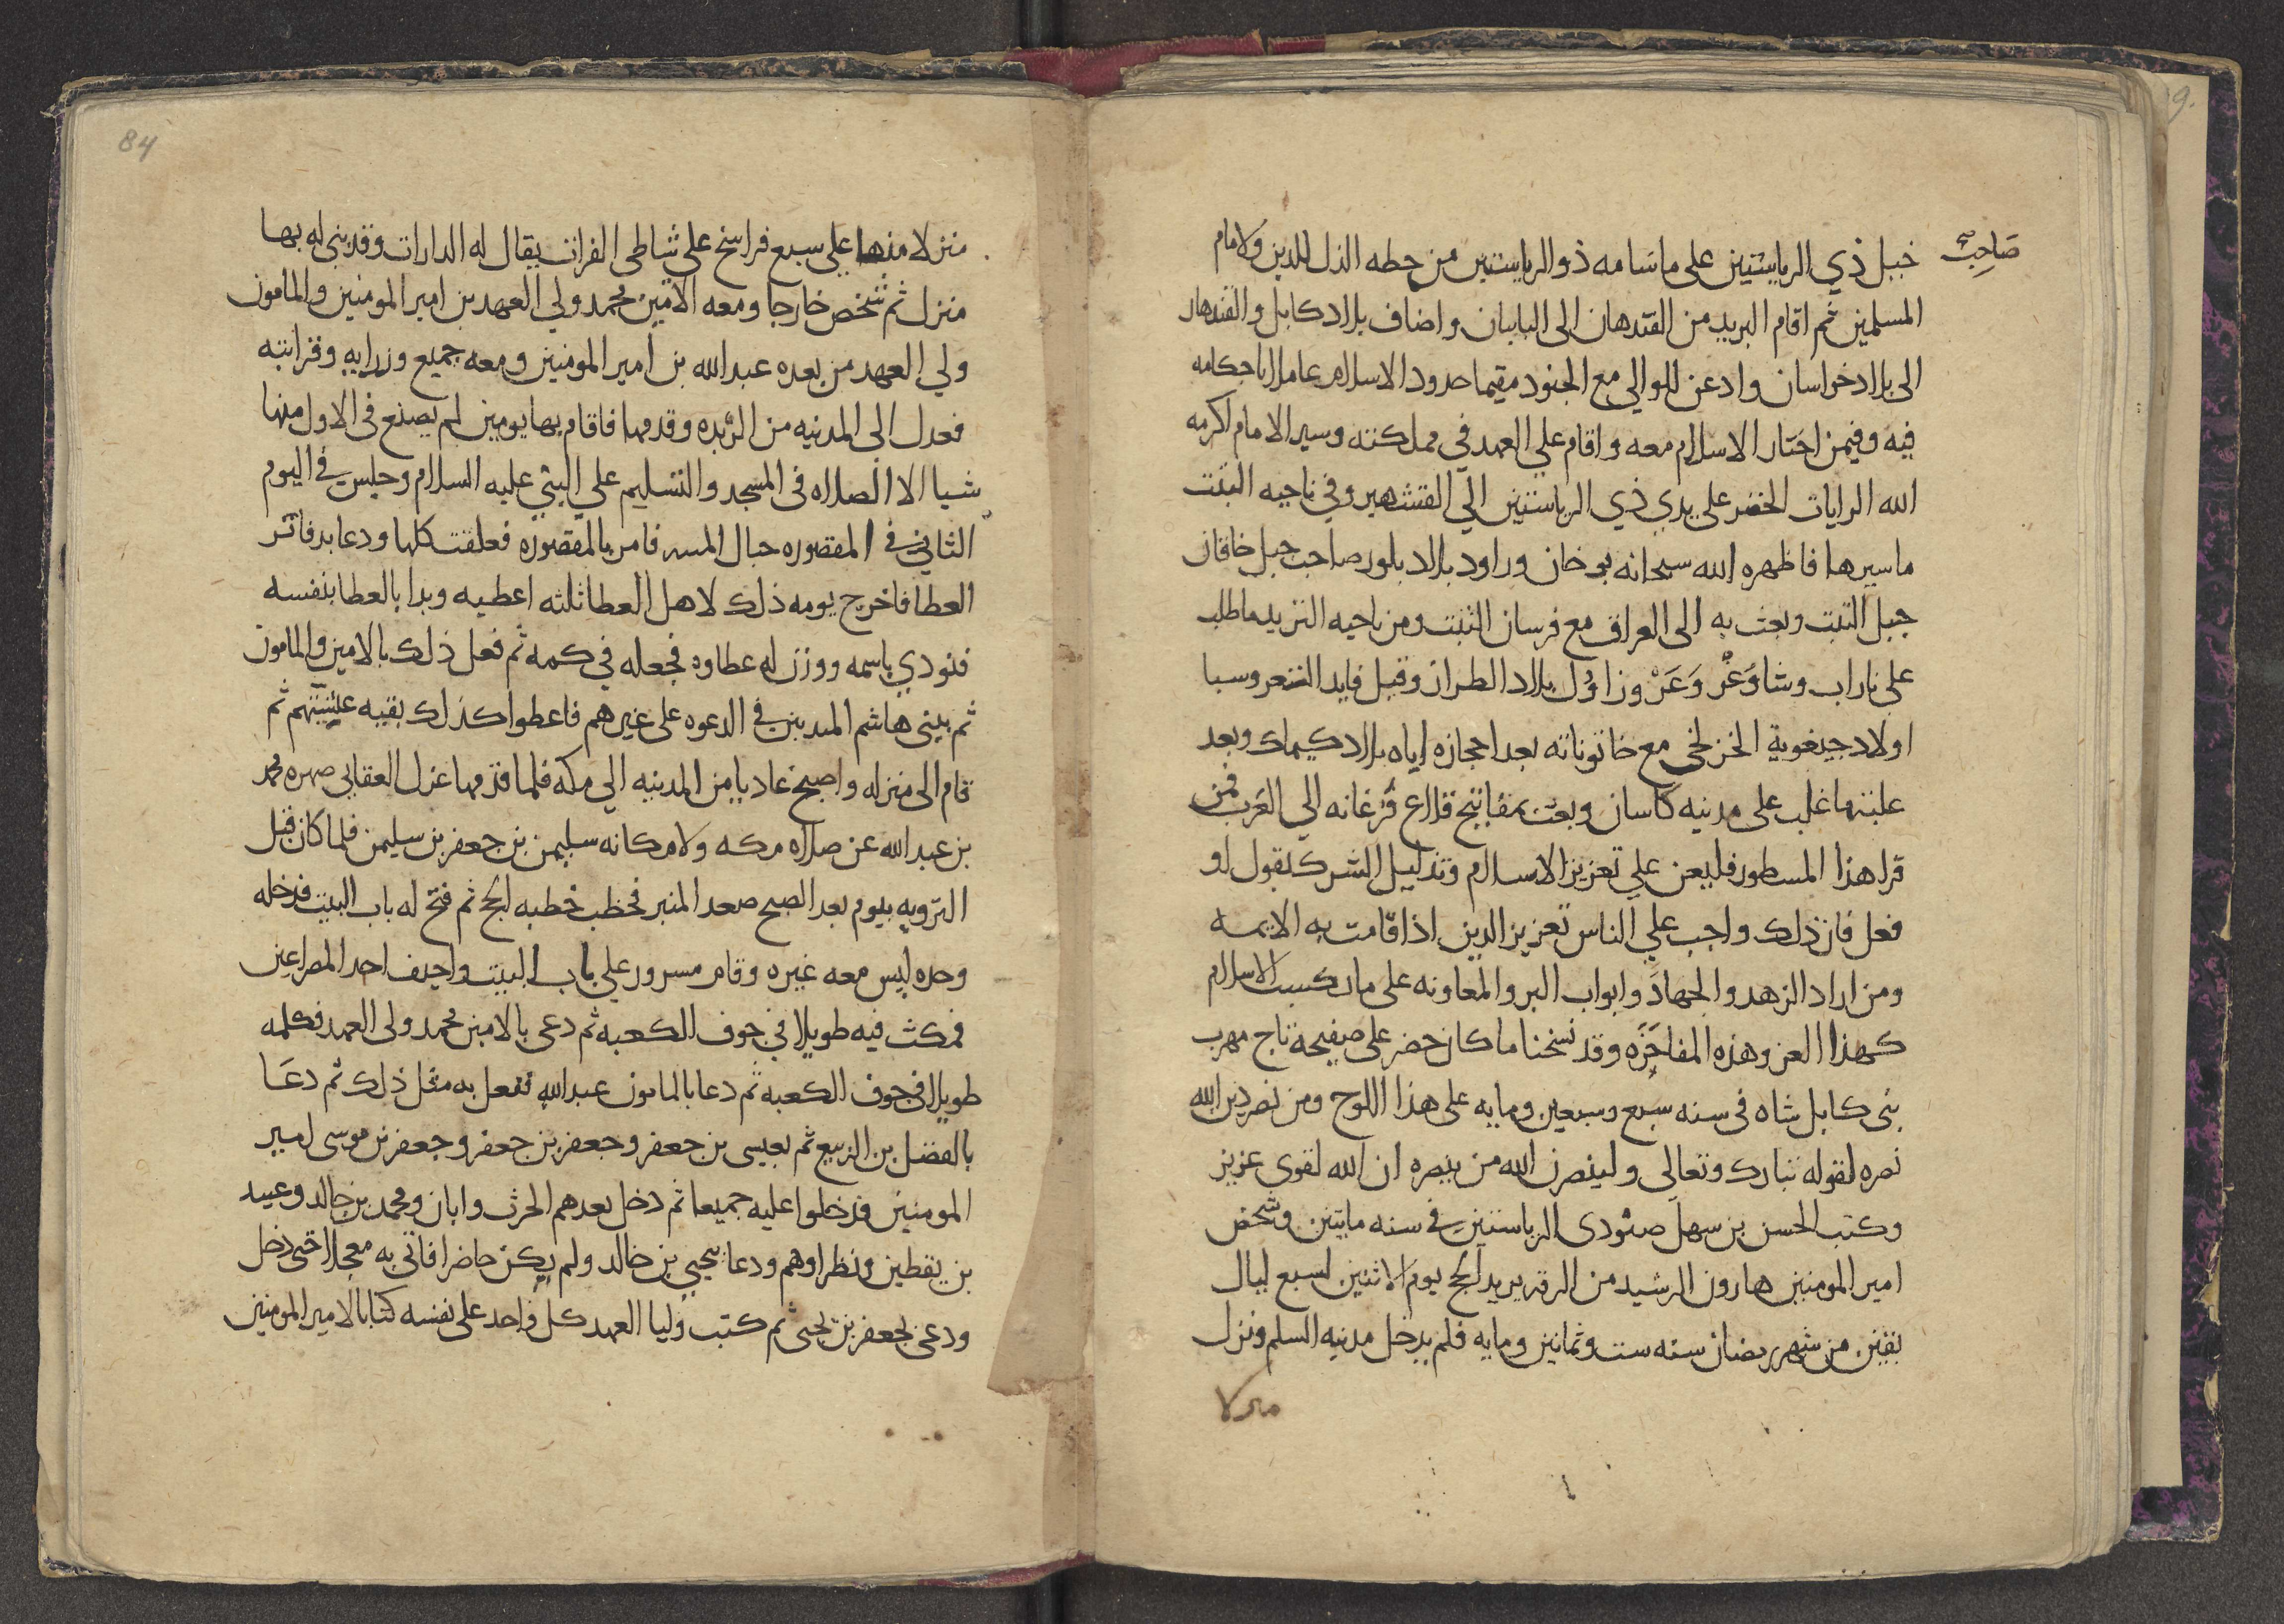 صَاحِبُ
خبل ذي الرياستين على ما سامه ذو الرياستين من حطه الذل للدين ولامام
المسلمين ثم اقام البريد من القندهان الى البابيان واضاف بلاد كابل والقندهار
الى بلاد خراسان وادعن للوالي مع الجنود مقيما حدود الاسلام عاملا باحكامه
فيه وفيمن اختار الاسلام معه واقام على العهد في مملكته وسير الامام اكرمه
الله الرايات الخضر على يدي ذي الرياستين الي القشتهير وفي ناحيه التبت
ما سيرها فاظهره الله سبحانه بو خان وراود بلاد بلور صاحب جبل خاقان
جبل التبت وبعث به الى العراق مع فرسان التبت ومن ناحيه التزيد ما طلب
على باراب وشاوَغَر وَعَرْ وزاوُل بلاد الطراز وقبل قايد الثغر وسبا
اولاد جيغوية الخزلخي مع خاتوناته بعد احجازه اياه بلاد كيماك وبعد
غلبتها غلب على مدينه كاسان وبعث بمفاتيح قلاع فرغانه الي العرب فمن
قرا هذا المسطور فليعن علي تعزيز الاسلام وتذليل الشرك بقول او
فعل فان ذلك واجب علي الناس تعزيز الدين اذا قامت به الايمه
ومن اراد الزهد والجهادَ وابواب البر والمعاونه على ما يكسب الاسلام
كهذا العز وهذه المفاخَره وقد نسخنا ما كان حفر على صفيحة تاج مهرب
بنى كابل شاه فى سنه سبع وسبعين ومايه على هذا اللوح ومن نصر دين الله
نصره لقوله تبارك وتعالى ولينصرن الله من ينصره ان الله لقوى عزيز
وكتب الحسن بن سهل صنودى الرياستين في سنه مايتين وشخص
امير المومنين هارون الرشيد من الرقه يريد الحج يوم الاثنين لسبع ليال
بقين من شهر رمضان سنه ست وثمانين ومايه فلم يدخل مدينه السلم ونزل
منزلا
84
منزلا منها علي سبع فراسخ على شاطى الفرات يقال له الدارات وقد بنى له بها
منزل ثم شخص خارجا ومعه الامين محمد ولي العهد بن امير المومنين والمامون
ولي العهد من بعده عبد الله بن امير المومنين ومعه جميع وزرايه وقرابته
فعدل الى المدينه من الربده وقدمها فاقام بها يومين لم يصنع فى الاول منها
شيا الا الصلاه فى المسجد والتسليم علي النبي عليه السلام وجلس في اليوم
الثاني في المقصوره حيال المسر فامر بالمقصوره فعلقت كلها ودعا بدفاتر
العطا فاخرج يومه ذلك لاهل العطا ثلثه اعطيه وبدا بالعطا بنفسه
فنودي باسمه ووزن له عطاوه فجعله في كمه ثم فعل ذلك بالامين والمامون
ثم ببني هاشم المبدين في الدعوه على غيرهم فاعطوا كذلك بقيه عشيتهم ثم
قام الى منزله واصبح غاديا من المدينه الي مكه فلما قدمها عزل العقابي صهره محمد
بن عبد الله عن صلاه مكه ولا مكانه سليمن بن جعفر بن سليمن فلما كان قبل
الترويه بيوم بعد الصبح صعد المنبر فخطب خطبه الحج ثم فتح له باب البيت فدخله
وحده ليس معه غيره وقام مسرور علي باب البيت واجيف احد المصراعين
فمكث فيه طويلا في جوف الكعبه ثم دعى بالامين محمد ولى العهد فكلمه
طويلا فى جوف الكعبه ثم دعا بالمامون عبد الله ففعل به مثل ذلك ثم دعَا
بالفضل بن الربيع ثم بعيسى بن جعفر وجعفر بن جعفر وجعفر بن موسى امير
المومنين فدخلوا عليه جميعا ثم دخل بعدهم الحرث وابان ومحمد بن خالد وعبيد
بن يقطين ونظراوهم ودعا بيحيي بن خالد ولم يكن حاضرا فاتى به معجلا حتى دخل
ودعى بجعفر بن يحيى ثم كتب وليا العهد كل واحد على نفسه كتابا لامير المومنين